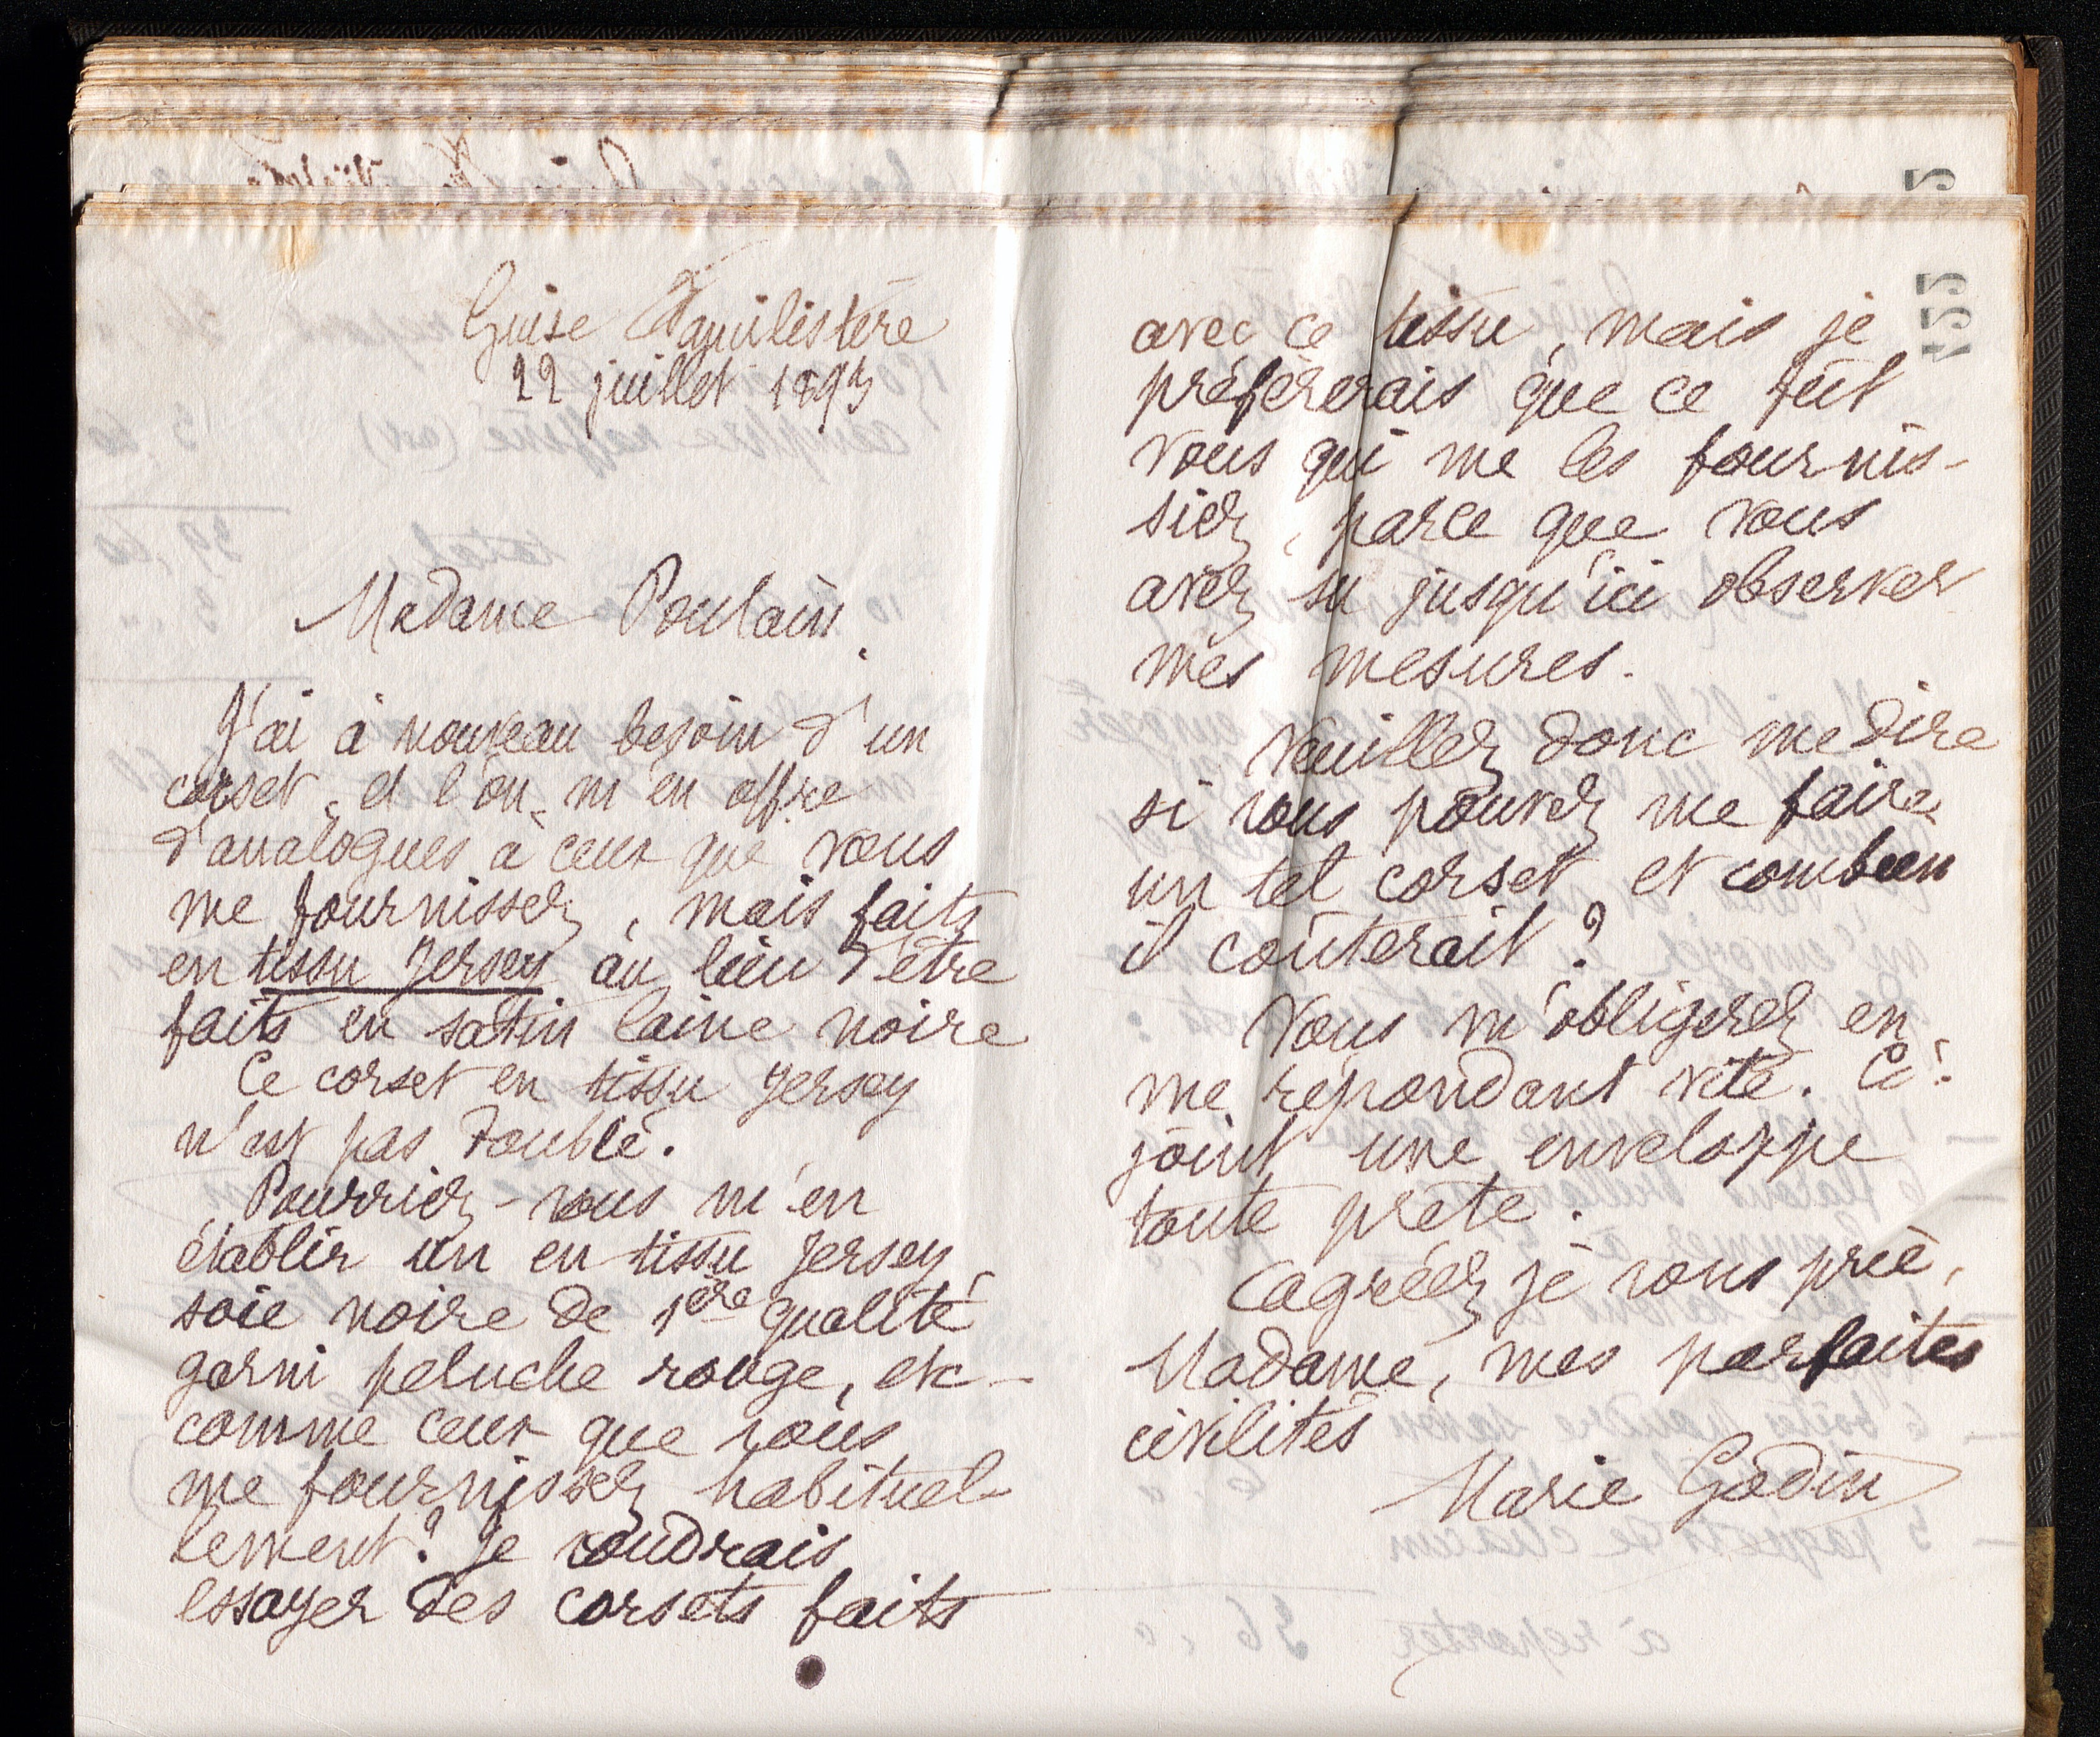 Guise Familistère
22 juillet 1893
Madame Poulain,
J'ai à nouveau besoin d'un
corset, et l'on m'en offre
d'analogues à ceux que vous
me fournissez, mais faits
en tissu Jersey au lieu d'être
faits en satin laine noire
Ce corset en tissu Jersey
n'est pas doublé.
Pourriez-vous m'en
établir un en tissu Jersey
soie noire de 1ère qualité
garni peluche rouge, etc-
comme ceux que vous
me fournissez habituel-
lement? Je voudrais
essayer des corsets faits
avec ce tissu, mais je
préfèrerais que ce fût
vous qui me les fournis-
siez, parce que vous
avez su jusqu'ici observer
mes mesures.
Veuillez donc me dire
si vous pouvez me faire
un tel corset et combien
il coûterait?
Vous m'obligerez en
me répondant vite. Ci-
joint une enveloppe
toute prête.
Agréez je vous prie,
Madame, mes parfaites
civilités
Marie Godin